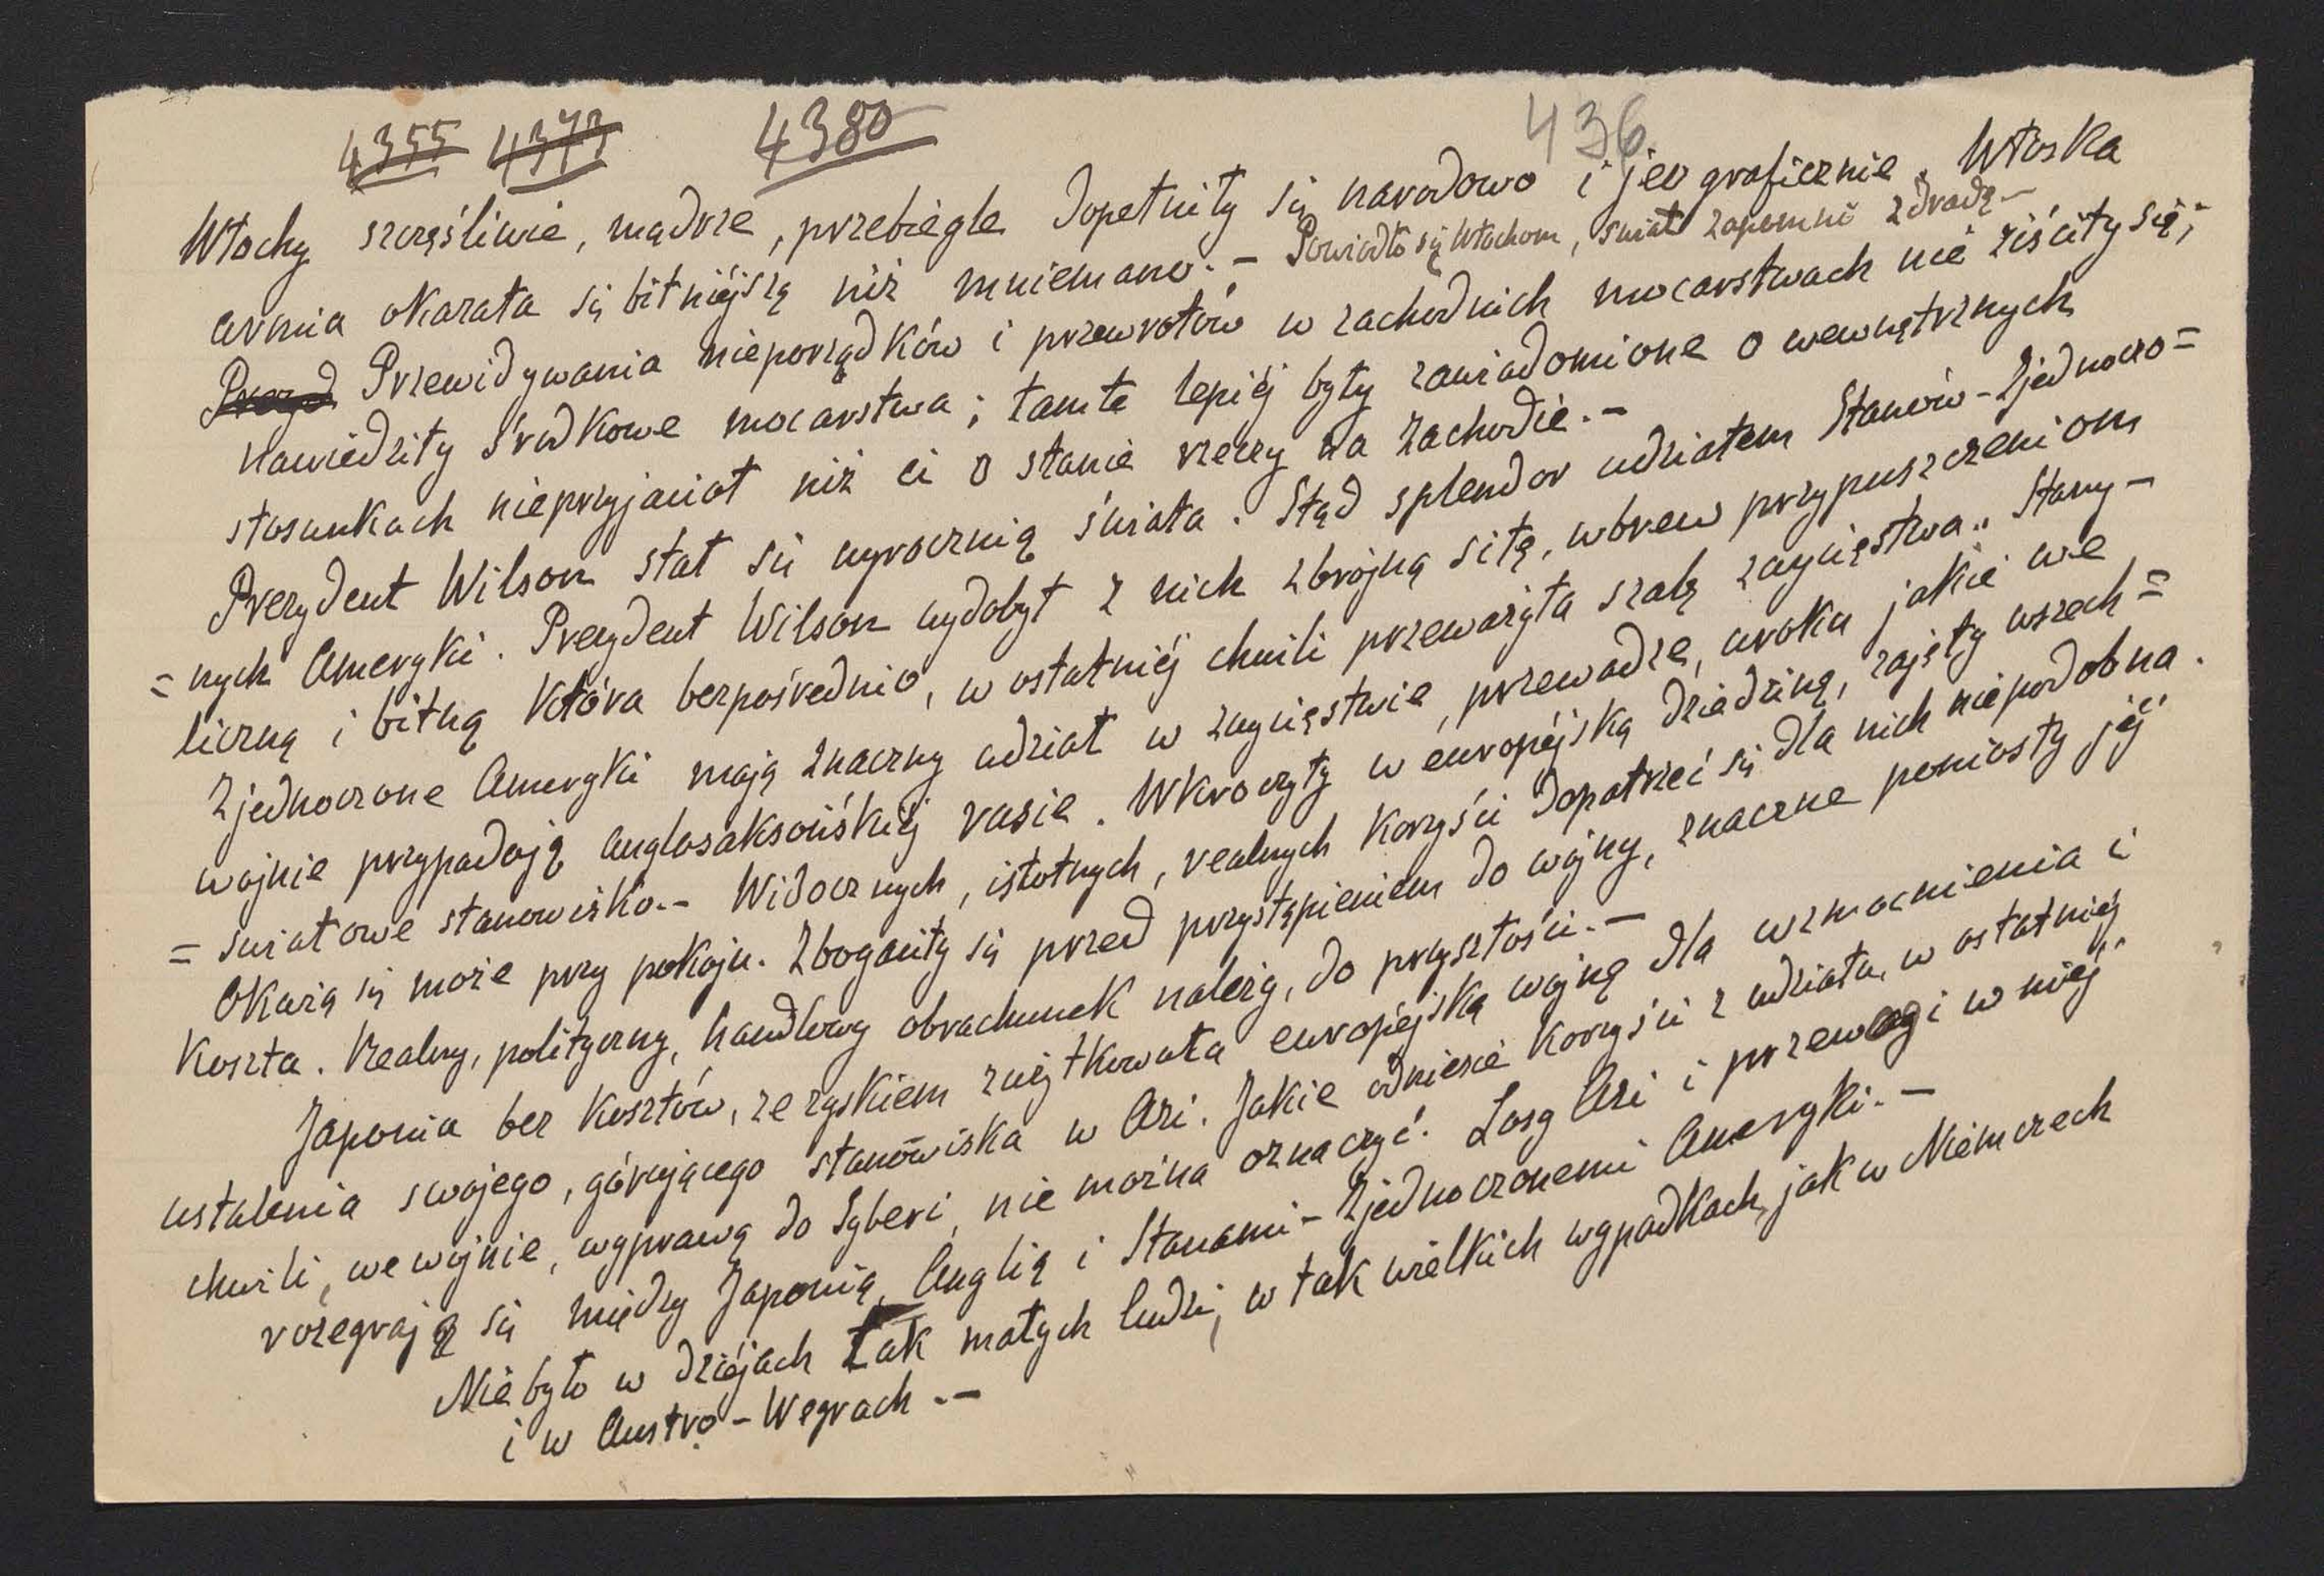 4355 4373 4380 436
Włochy szczęśliwie, mądrze, przebiegle dopełniły się narodowo i jeograficznie. Włoska
armia okazała się bitniejszą niż mniemano. – Powiodło się Włochom, świat zapomni zdradę –
Przed Przewidywania nieporządków i przewrotów w zachodnich mocarstwach nie ziściły się;
nawiedziły środkowe mocarstwa; tamte lepiéj były zawiadomione o wewnętrznych
stosunkach nieprzyjaciół niż ci o stanie rzeczy na zachodzie. –
Prezydent Wilson stał się wyrocznią świata. Stąd splendor udziałem Stanów-Zjednoczo=
=nych Ameryki. Prezydent Wilson wydobył z nich zbrojną siłę, wbrew przypuszczeniom
liczną i bitną która bezpośrednio, w ostatniéj chwili przeważyła szalę zwycięstwa. Stany-
Zjednoczone Ameryki mają znaczny udział w zwycięstwie, przewadze, uroku jakie we
wojnie przypadają anglosaksońskiéj rasie. Wkroczyły w européjską dziedzinę, zajęły wszech=
=światowe stanowisko. – Widocznych, istotnych, realnych korzyści dopatrzeć się dla nich niepodobna.
Okażą się może przy pokoju. Zbogaciły się przed przystąpieniem do wojny, znaczne poniosły jéj
koszta. Realny, polityczny, handlowy obrachunek należy, do przyszłości. –
Japonia bez kosztów, ze zyskiem zużytkowała européjską wojnę dla wzmocnienia i
ustalenia swojego, górującego stanowiska w Azi. Jakie odniesie korzyści z udziału, w ostatniéj
chwili, we wojnie, wyprawą do Syberi, nie można oznaczyć. Losy Azi i przewagi w niéj
rozegrają się między Japonią, Anglią i Stanami-Zjednoczonemi Ameryki. –
Nie było w dziejach tak małych ludzi, w tak wielkich wypadkach, jak w Niemczech
i w Austro-Wegrach. –